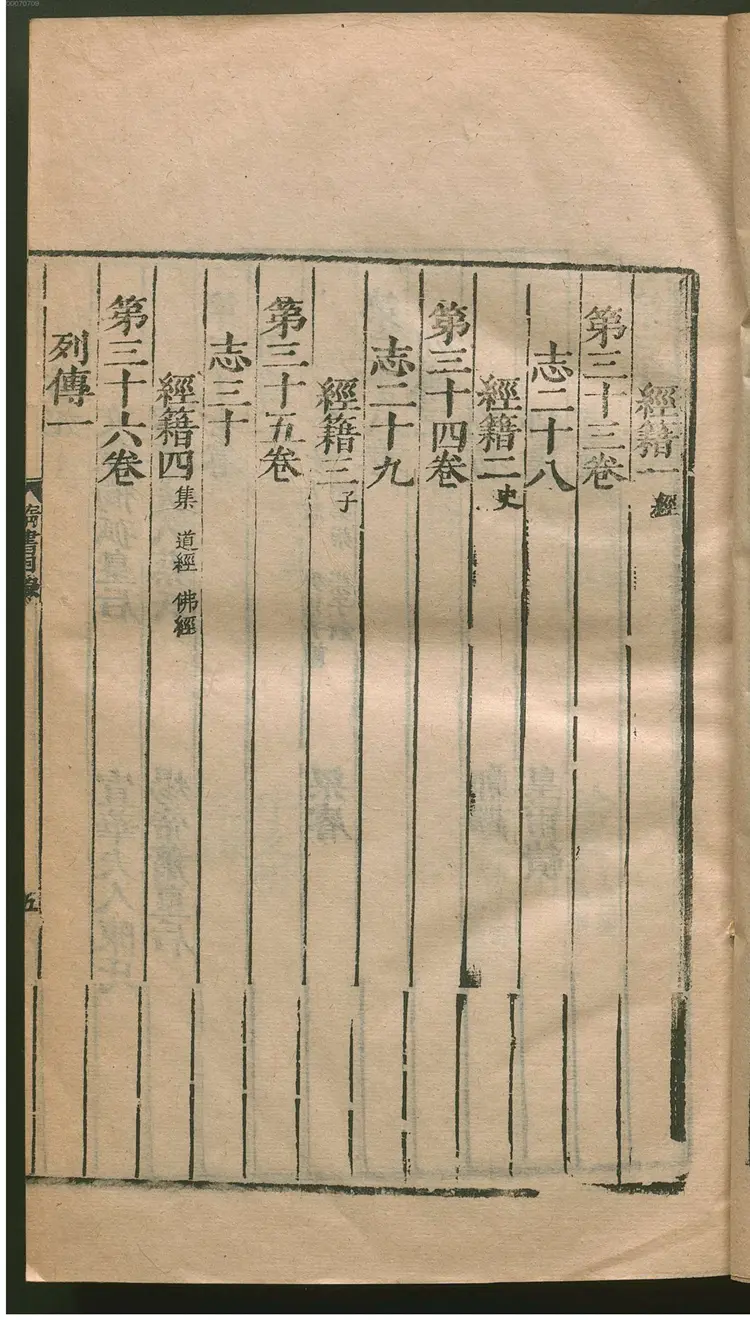 經籍一 經
第三十三卷
志二十八
經籍二 史
第三十四卷
志二十九
經籍三 子
第三十五卷
志三十
經籍四 集 道經 佛經
第三十六卷
列傳一
隋書目錄
五